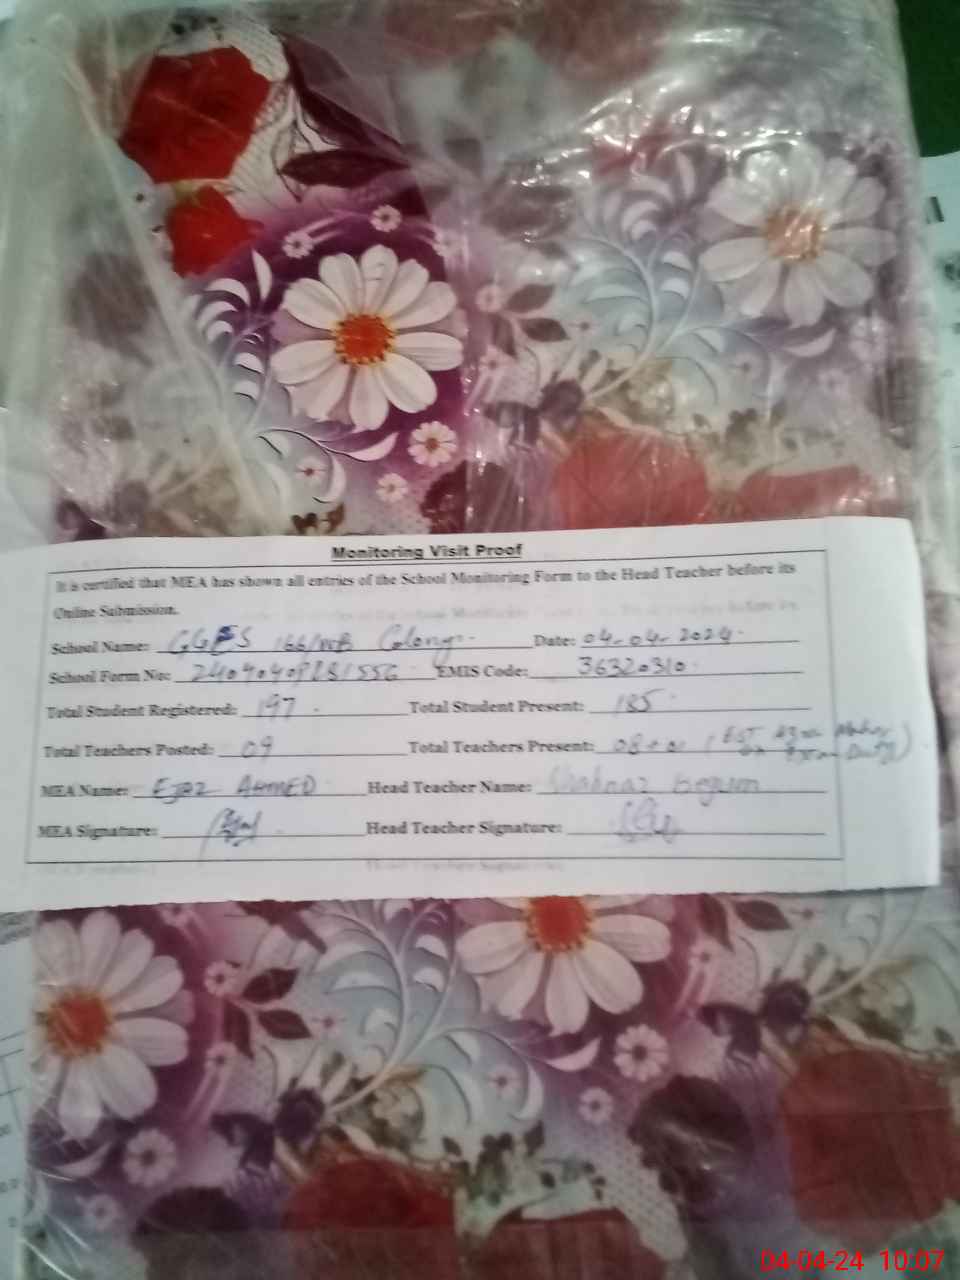 Monitoring Visit Proof
It is certified that MEA has shown all entries of the School Monitoring Form to the Head Teacher before its
Online Submission.
School Name: GGES 166/WB Colony. Date: 04-04-2024.
School Form No: EMIS Code: 36320310.
Total Student Registered: 197 Total Student Present: 185
Total Teachers Posted: 09 Total Teachers Present: 08+01 (EST on Exam Duty)
MEA Name: EJAZ AHMED Head Teacher Name: Shahnaz Begum
MEA Signature: Head Teacher Signature:
04-04-24 10:07